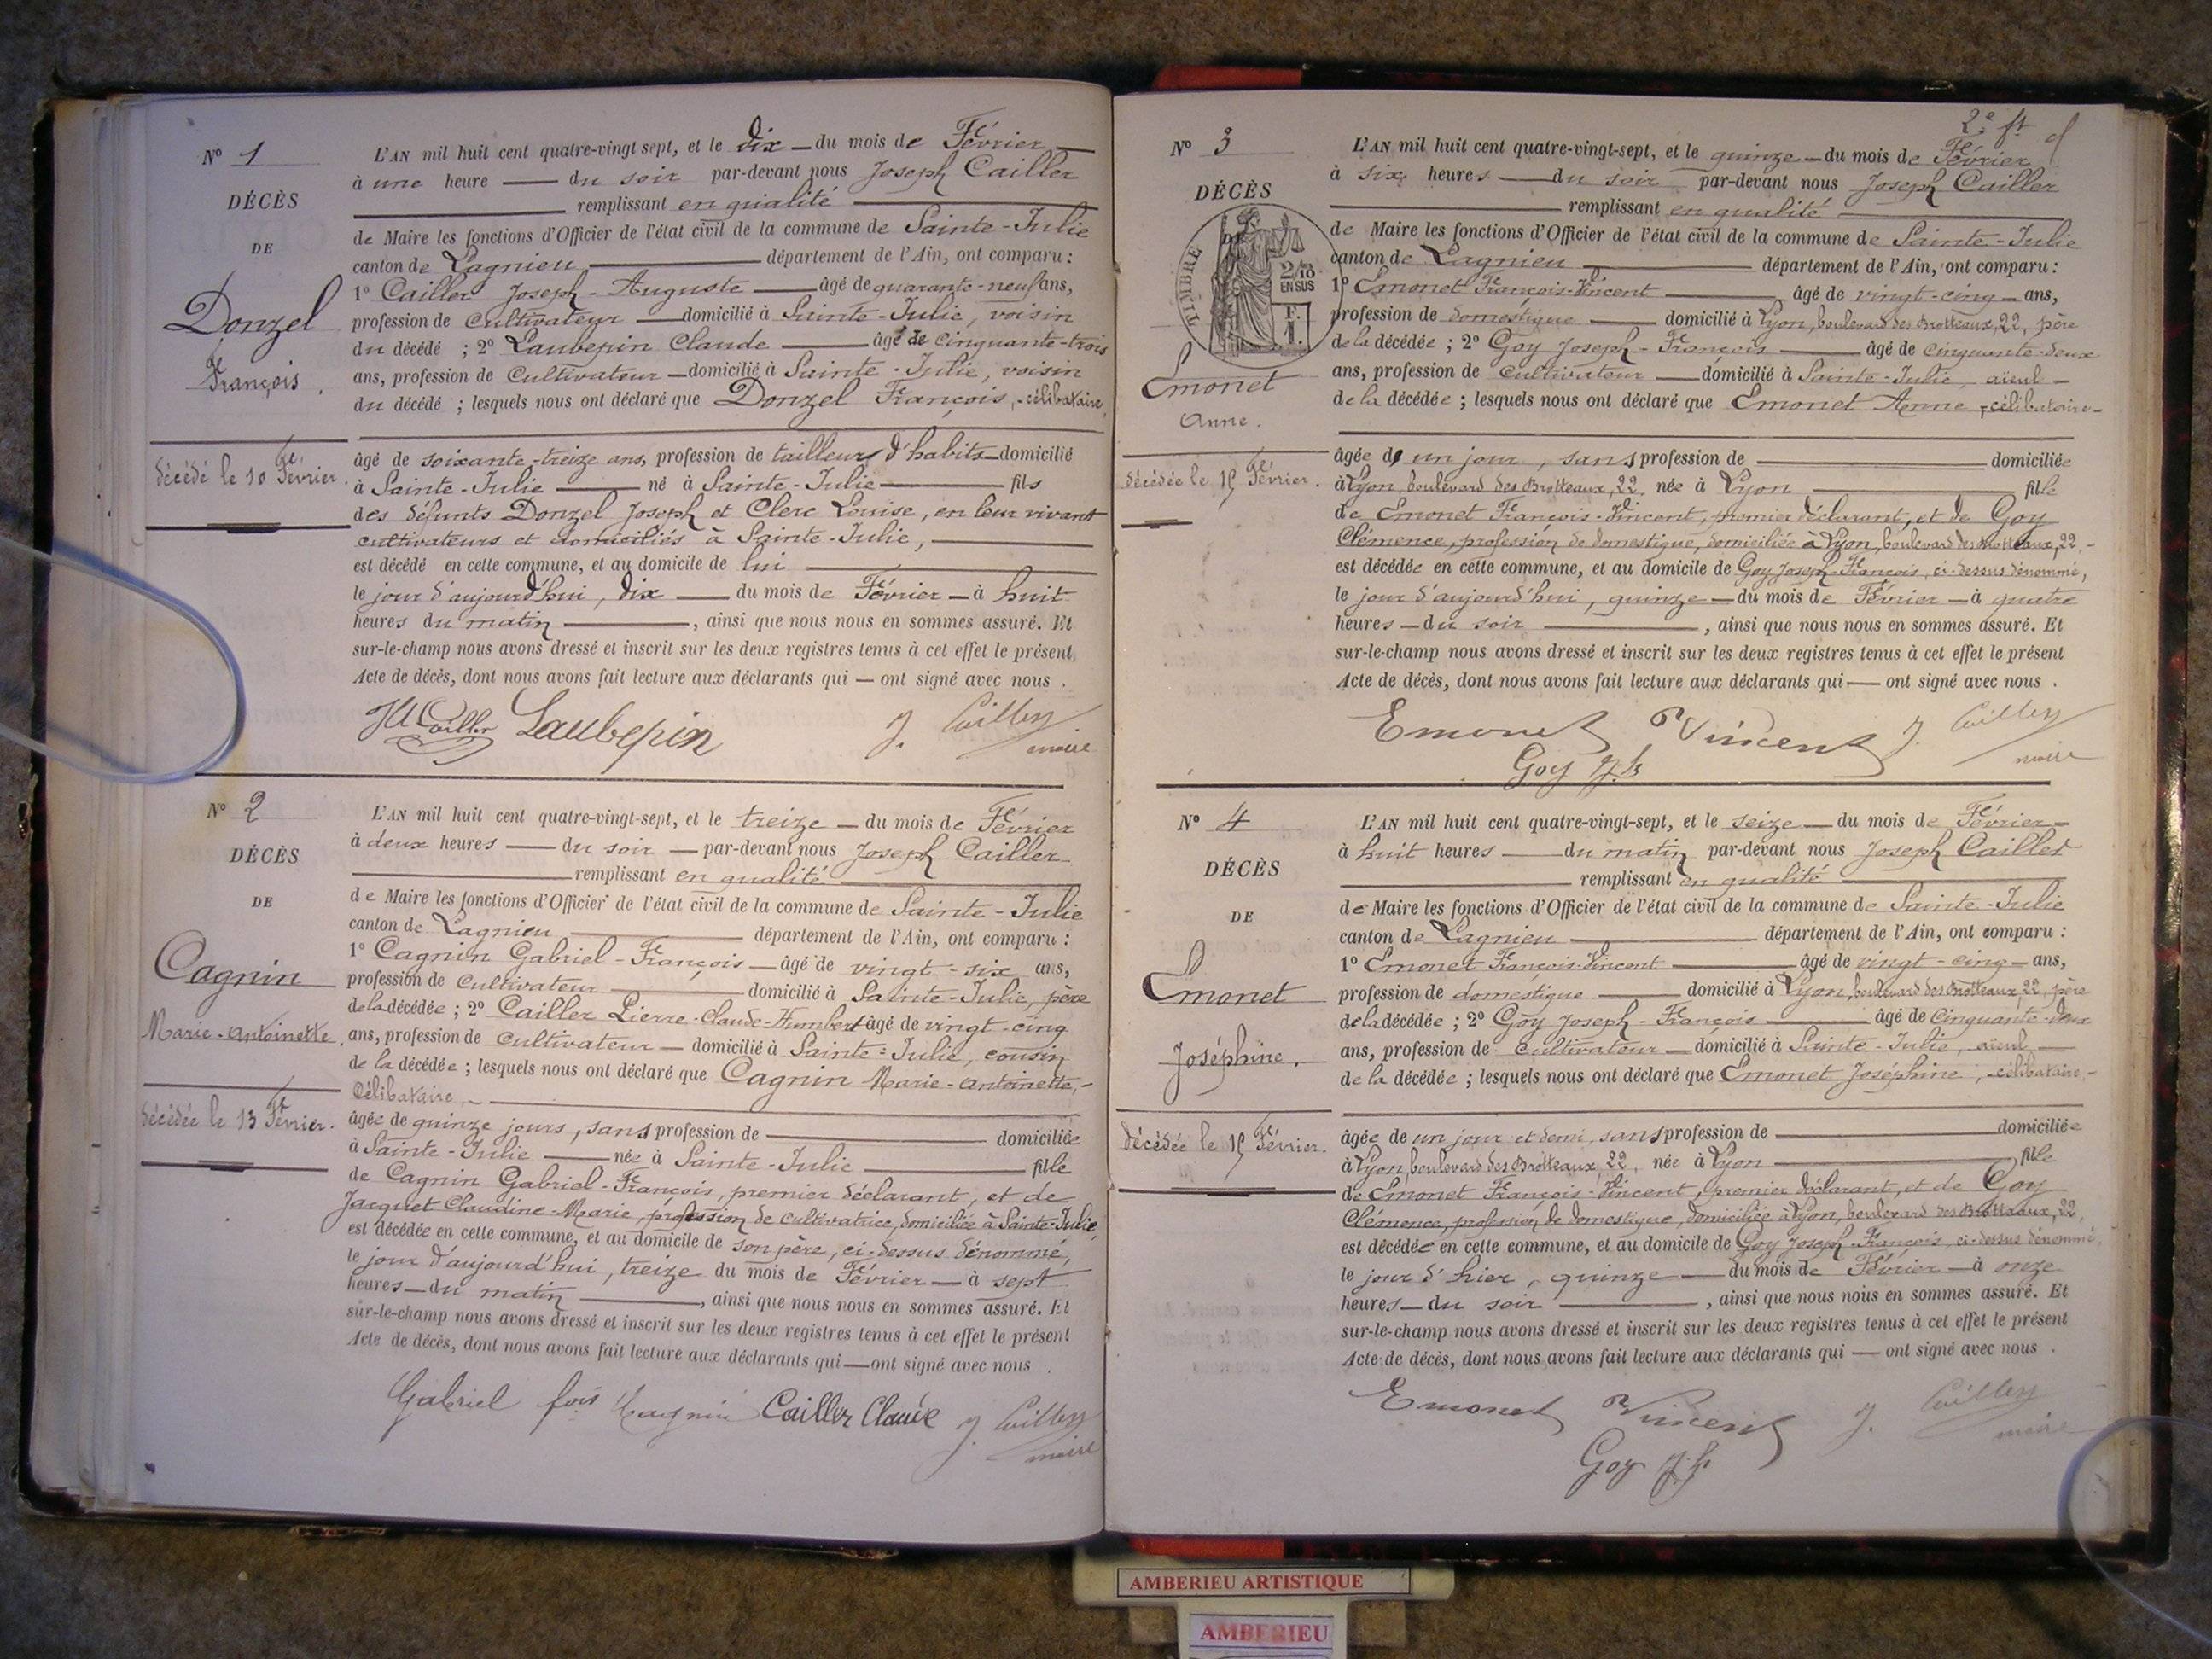 Nº 1
DÉCÈS
DE
Donzel
François.
décédé le 10 Février.
L'AN mil huit cent quatre-vingt sept, et le dix — du mois de Février
à une heure — du soir par-devant nous Joseph Cailler
remplissant en qualité
de Maire les fonctions d'Officier de l'état civil de la commune de Sainte-Julie
canton de Lagnieu — département de l'Ain, ont comparu :
1º Cailler Joseph-Auguste — âgé de quarante-neuf ans,
profession de Cultivateur — domicilié à Sainte-Julie, voisin
du décédé ; 2º Laubepin Claude — âgé de cinquante-trois
ans, profession de Cultivateur — domicilié à Sainte-Julie, voisin
du décédé ; lesquels nous ont déclaré que Donzel François, célibataire,
âgé de soixante-treize ans, profession de tailleur d'habits — domicilié
à Sainte-Julie — né à Sainte-Julie — fils
des défunts Donzel Joseph et Clerc Louise, en leur vivant
cultivateurs et domiciliés à Sainte-Julie,
est décédé en cette commune, et au domicile de lui
le jour d'aujourd'hui, dix — du mois de Février — à huit
heures du matin —, ainsi que nous nous en sommes assuré. Et
sur-le-champ nous avons dressé et inscrit sur les deux registres tenus à cet effet le présent
Acte de décès, dont nous avons fait lecture aux déclarants qui — ont signé avec nous .
JA Cailler Laubepin J. Cailler
maire
Nº 2
DÉCÈS
DE
Cagnin
Marie-Antoinette.
décédée le 13 Février.
L'AN mil huit cent quatre-vingt-sept, et le treize — du mois de Février
à deux heures — du soir — par-devant nous Joseph Cailler
remplissant en qualité
de Maire les fonctions d'Officier de l'état civil de la commune de Sainte-Julie
canton de Lagnieu — département de l'Ain, ont comparu :
1º Cagnin Gabriel-François — âgé de vingt-six ans,
profession de Cultivateur — domicilié à Sainte-Julie, père
de la décédée ; 2º Cailler Pierre-Claude-Humbert âgé de vingt-cinq
ans, profession de Cultivateur — domicilié à Sainte-Julie, cousin
de la décédée ; lesquels nous ont déclaré que Cagnin Marie-Antoinette, -
Célibataire, -
âgée de quinze jours, sans profession de — domiciliée
à Sainte-Julie — née à Sainte-Julie — fille
de Cagnin Gabriel-François, premier déclarant, et de
Jacquet Claudine-Marie, profession de cultivatrice, domiciliée à Sainte-Julie,
est décédée en cette commune, et au domicile de son père, ci-dessus dénommé,
le jour d'aujourd'hui, treize du mois de Février — à sept
heures — du matin —, ainsi que nous nous en sommes assuré. Et
sur-le-champ nous avons dressé et inscrit sur les deux registres tenus à cet effet le présent
Acte de décès, dont nous avons fait lecture aux déclarants qui — ont signé avec nous .
Gabriel fois Cagnin Cailler Claude J. Cailler
maire
2e ft
Nº 3
DÉCÈS
DE
TIMBRE
2/10
EN SUS
F.
1.
Emonet
Anne.
décédée le 15 Février.
L'AN mil huit cent quatre-vingt-sept, et le quinze — du mois de Février
à six heures — du soir — par-devant nous Joseph Cailler
remplissant en qualité
de Maire les fonctions d'Officier de l'état civil de la commune de Sainte-Julie
canton de Lagnieu — département de l'Ain, ont comparu :
1º Emonet François-Vincent — âgé de vingt-cinq — ans,
profession de domestique — domicilié à Lyon, boulevard des Brotteaux, 22, père
de la décédée ; 2º Goy Joseph-François — âgé de cinquante-deux
ans, profession de cultivateur — domicilié à Sainte-Julie, aïeul —
de la décédée ; lesquels nous ont déclaré que Emonet Anne, célibataire -
âgée d'un jour, sans profession de — domiciliée
à Lyon, boulevard des Brotteaux, 22, née à Lyon — fille
de Emonet François-Vincent, premier déclarant, et de Goy
Clémence, profession de domestique, domiciliée à Lyon, boulevard des Brotteaux, 22, -
est décédée en cette commune, et au domicile de Goy Joseph-François, ci-dessus dénommé,
le jour d'aujourd'hui, quinze — du mois de Février — à quatre
heures — du soir —, ainsi que nous nous en sommes assuré. Et
sur-le-champ nous avons dressé et inscrit sur les deux registres tenus à cet effet le présent
Acte de décès, dont nous avons fait lecture aux déclarants qui — ont signé avec nous .
Emonet Vincent J. Cailler
Goy Jh maire
Nº 4
DÉCÈS
DE
Emonet
Joséphine.
décédée le 15 Février.
L'AN mil huit cent quatre-vingt-sept, et le seize — du mois de Février —
à huit heures — du matin par-devant nous Joseph Cailler
remplissant en qualité
de Maire les fonctions d'Officier de l'état civil de la commune de Sainte-Julie
canton de Lagnieu — département de l'Ain, ont comparu :
1º Emonet François-Vincent — âgé de vingt-cinq — ans,
profession de domestique — domicilié à Lyon, boulevard des Brotteaux, 22, père
de la décédée ; 2º Goy Joseph-François — âgé de cinquante-deux
ans, profession de cultivateur — domicilié à Sainte-Julie, aïeul —
de la décédée ; lesquels nous ont déclaré que Emonet Joséphine, célibataire, -
âgée de un jour et demi, sans profession de — domiciliée
à Lyon, boulevard des Brotteaux, 22, née à Lyon — fille
de Emonet François-Vincent, premier déclarant, et de Goy
Clémence, profession de domestique, domiciliée à Lyon, boulevard des Brotteaux, 22,
est décédée en cette commune, et au domicile de Goy Joseph-François, ci-dessus dénommé
le jour d'hier, quinze — du mois de Février — à onze
heures — du soir —, ainsi que nous nous en sommes assuré. Et
sur-le-champ nous avons dressé et inscrit sur les deux registres tenus à cet effet le présent
Acte de décès, dont nous avons fait lecture aux déclarants qui — ont signé avec nous .
Emonet Vincent J. Cailler
Goy Jh maire
AMBERIEU ARTISTIQUE
AMBERIEU